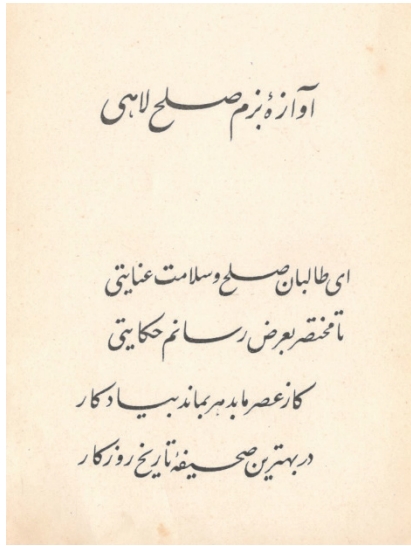 آوازهٔ بزم صلح لاهی
ای طالبان صلح و سلامت عنایتی
تا مختصر بعرض رسانم حکایتی
کاز عصر ما بدهر بماند بیادکار
در بهترین صحیفهٔ تاریخ روزکار